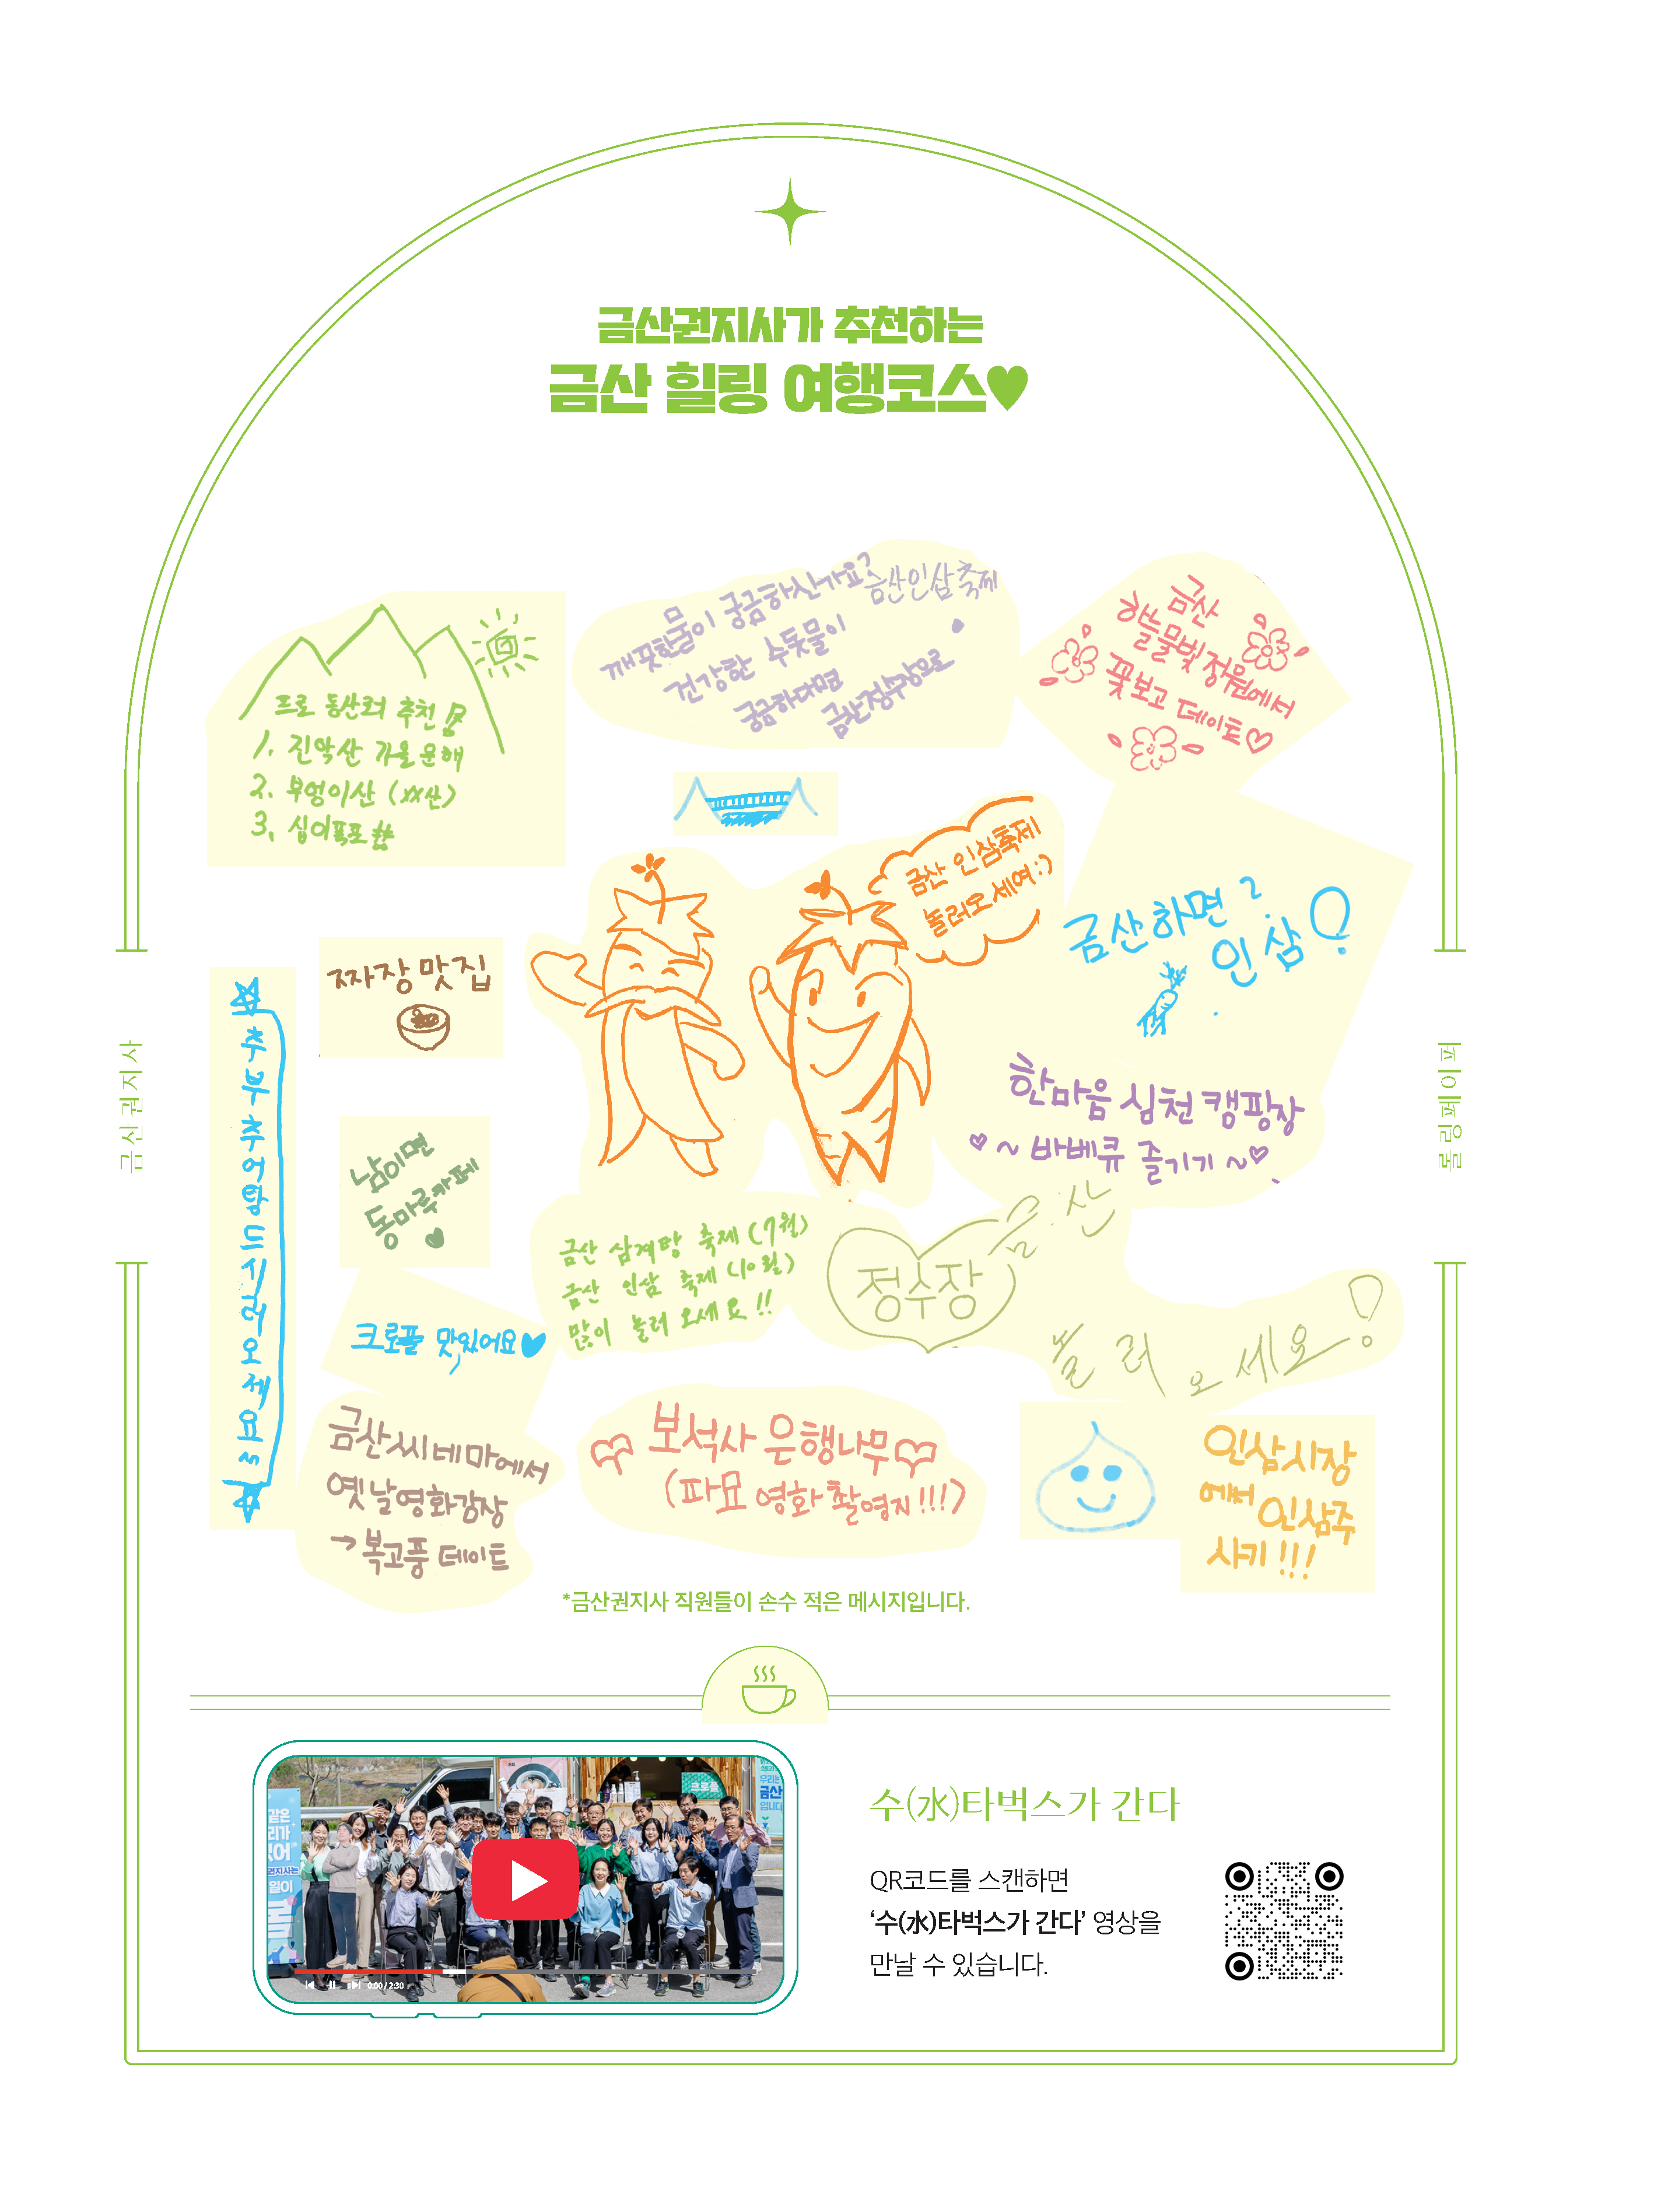 금산권지사가 추천하는
금산 힐링 여행코스♥
프로 등산러 추천
1. 진악산 가을 운해
2. 부엉이산 (XX산)
3. 십이폭포
깨끗한 물이 궁금하신가요?
금산인삼축제
건강한 수돗물이
궁금하다면
금산정수장으로
금산
하늘물빛정원에서
꽃보고 데이트♡
금산 인삼축제
놀러오세여:)
금산하면?
인삼!
짜장 맛집
추부추어탕드시러오세요~
남이면
동마루카페
♥
한마음 심천 캠핑장
♡~ 바베큐 즐기기 ~♡
금산 삼계탕 축제 (7월)
금산 인삼 축제 (10월)
많이 놀러 오세요!!
금산
정수장
놀러오세요!
크로플 맛있어요♥
금산씨네마에서
옛날영화감상
→복고풍 데이트
♡ 보석사 은행나무 ♡
(파묘 영화 촬영지!!!)
인삼시장
에서 인삼주
사기!!!
*금산권지사 직원들이 손수 적은 메시지입니다.
금산권지사
롤링페이퍼
0:00 / 2:30
수(水)타벅스가 간다
QR코드를 스캔하면
‘수(水)타벅스가 간다’ 영상을
만날 수 있습니다.